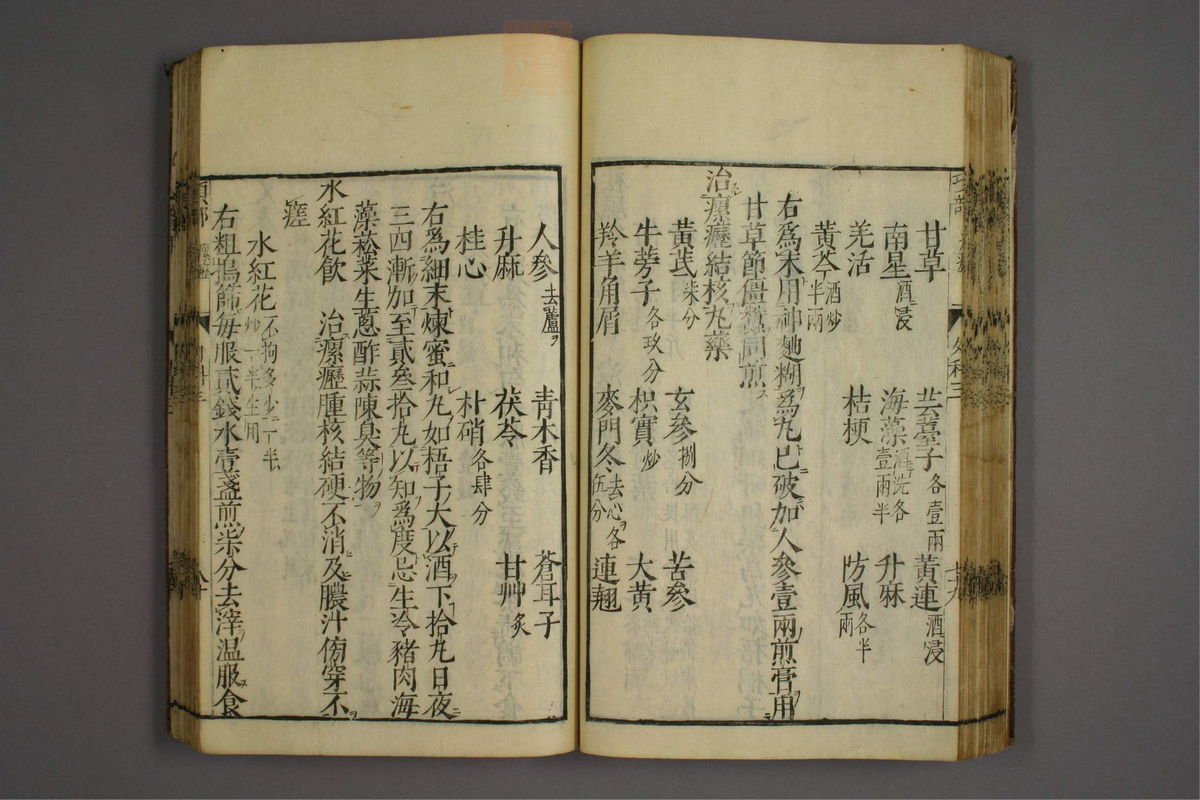 甘草　芸薹子各壹兩　黃連酒浸
南星酒浸　海藻酒洗各壹兩半　升麻
羌活　桔梗　防風各半兩
黃芩酒炒半兩
右爲末用神麯糊爲丸已破加人參壹兩煎膏用
甘草節僵蠶同煎
治瘰癧結核丸藥
黃芪柒分　玄參捌分　苦參
牛蒡子各玖分　枳實炒　大黃
羚羊角屑　麥門冬去心各伍分　連翹
人參去蘆　青木香　蒼耳子
升麻　茯苓　甘艸炙
桂心　朴硝各肆分
右爲細末煉蜜和丸如梧子大以酒下拾丸日夜
三四漸加至貳叁拾丸以知爲度忌生冷豬肉海
藻菘菜生蔥酢蒜陳臭等物
水紅花飲　治瘰癧腫核結硬不消及膿汁傍穿不
瘥
水紅花不拘多少一半炒一半生用
右粗搗篩每服貳錢水壹盞煎柒分去滓温服食